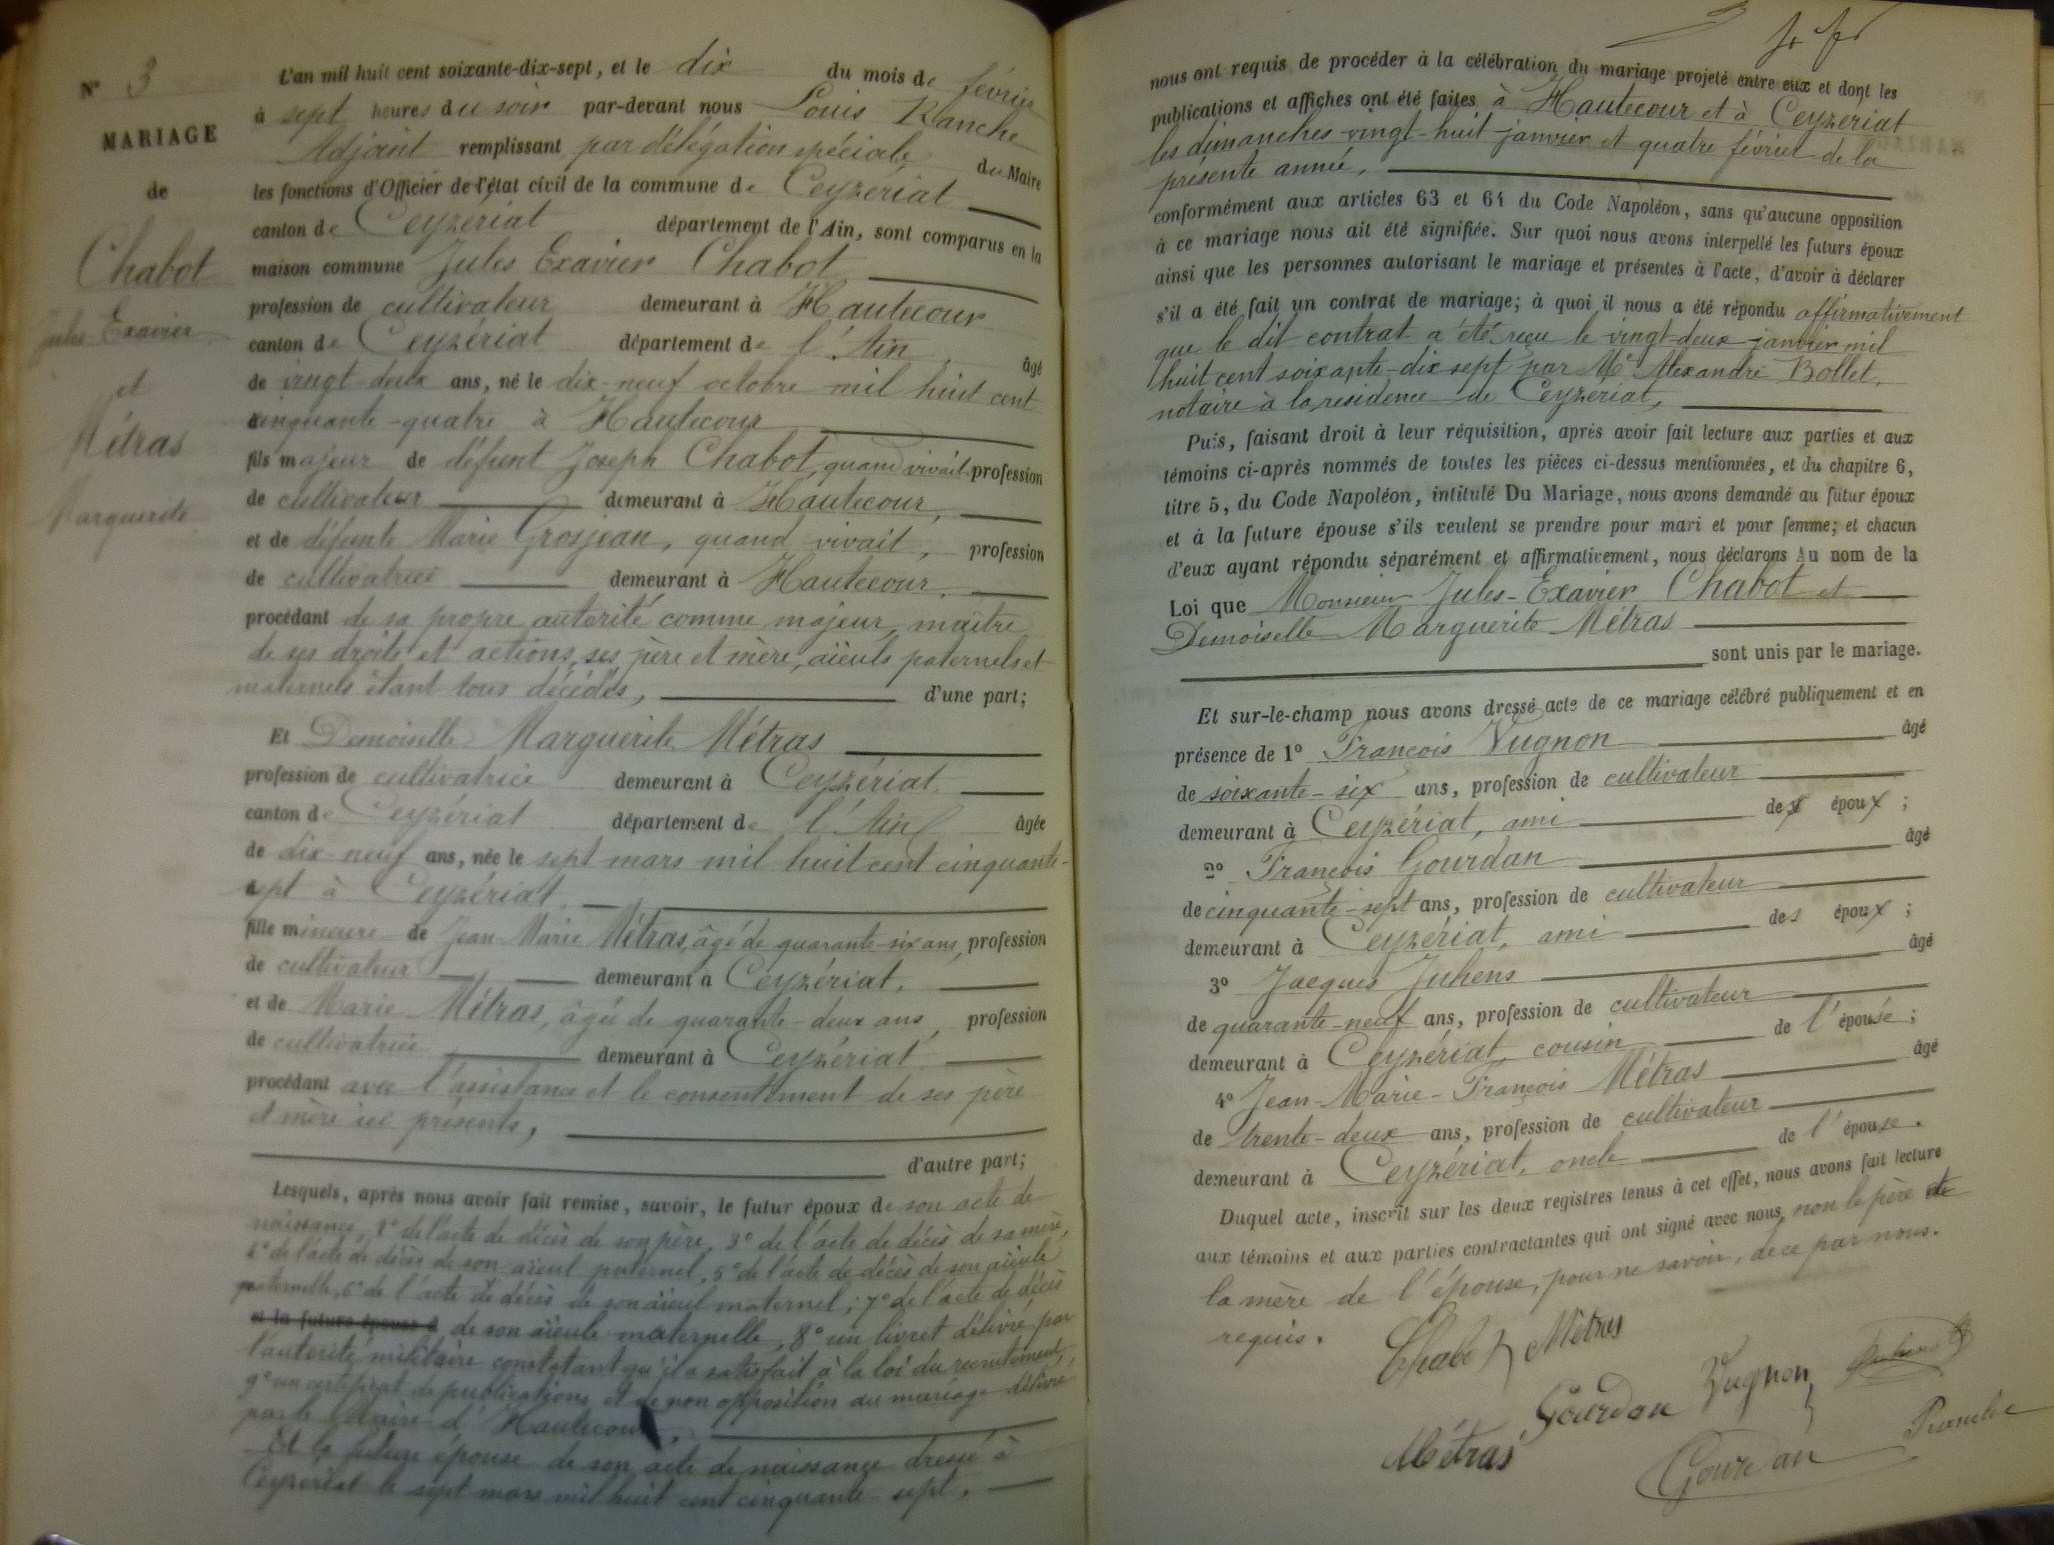 N° 3
MARIAGE
de
Chabot
Jules Exavier
et
Métras
Marguerite
L'an mil huit cent soixante-dix-sept, et le dix du mois de février
à sept heures du soir par-devant nous Louis Ranche
Adjoint remplissant par délégation spéciale du Maire
les fonctions d'Officier de l'état civil de la commune de Ceyzériat
canton de Ceyzériat département de l'Ain, sont comparus en la
maison commune Jules Exavier Chabot
profession de cultivateur demeurant à Hautecour
canton de Ceyzériat département de l'Ain, âgé
de vingt-deux ans, né le dix-neuf octobre mil huit cent
cinquante-quatre à Hautecour
fils majeur de défunt Joseph Chabot, quand vivait profession
de cultivateur demeurant à Hautecour,
et de défunte Marie Grosjean, quand vivait, profession
de cultivatrice demeurant à Hautecour,
procédant de sa propre autorité comme majeur, maître
de ses droits et actions, ses père et mère, aïeuls paternels et
maternels étant tous décédés, d'une part;
Et Demoiselle Marguerite Métras
profession de cultivatrice demeurant à Ceyzériat,
canton de Ceyzériat département de l'Ain âgée
de dix-neuf ans, née le sept mars mil huit cent cinquante-
sept à Ceyzériat
fille mineure de Jean-Marie Métras, âgé de quarante-six ans, profession
de cultivateur demeurant à Ceyzériat,
et de Marie Métras, âgée de quarante-deux ans, profession
de cultivatrice demeurant à Ceyzériat
procédant avec l'assistance et le consentement de ses père
et mère ici présents,
d'autre part;
Lesquels, après nous avoir fait remise, savoir, le futur époux de son acte de
naissance, 2° de l'acte de décès de son père, 3° de l'acte de décès de sa mère,
4° de l'acte de décès de son aïeul paternel, 5° de l'acte de décès de son aïeule
paternelle, 6° de l'acte de décès de son aïeul maternel; 7° de l'acte de décès
et la future épouse d de son aïeule maternelle, 8° un livret délivré par
l'autorité militaire constatant qu'il a satisfait à la loi du recrutement,
9° un certificat de publications et de non opposition au mariage délivré
par le Maire d'Hautecour,
Et la future épouse de son acte de naissance dressé à
Ceyzériat le sept mars mil huit cent cinquante-sept,
nous ont requis de procéder à la célébration du mariage projeté entre eux et dont les
publications et affiches ont été faites à Hautecour et à Ceyzériat
les dimanches vingt-huit janvier et quatre février de la
présente année,
conformément aux articles 63 et 64 du Code Napoléon, sans qu'aucune opposition
à ce mariage nous ait été signifiée. Sur quoi nous avons interpellé les futurs époux
ainsi que les personnes autorisant le mariage et présentes à l'acte, d'avoir à déclarer
s'il a été fait un contrat de mariage; à quoi il nous a été répondu affirmativement
que le dit contrat a été reçu le vingt-deux janvier mil
huit cent soixante-dix sept par Me Alexandre Bollet,
notaire à la résidence de Ceyzériat,
Puis, faisant droit à leur réquisition, après avoir fait lecture aux parties et aux
témoins ci-après nommés de toutes les pièces ci-dessus mentionnées, et du chapitre 6,
titre 5, du Code Napoléon, intitulé Du Mariage, nous avons demandé au futur époux
et à la future épouse s'ils veulent se prendre pour mari et pour femme; et chacun
d'eux ayant répondu séparément et affirmativement, nous déclarons Au nom de la
Loi que Monsieur Jules-Exavier Chabot et
Demoiselle Marguerite Métras
sont unis par le mariage.
Et sur-le-champ nous avons dressé acte de ce mariage célébré publiquement et en
présence de 1° François Vugnon âgé
de soixante-six ans, profession de cultivateur
demeurant à Ceyzériat, ami des époux;
2° François Gourdan âgé
de cinquante-sept ans, profession de cultivateur
demeurant à Ceyzériat, ami des époux;
3° Jacques Juhens âgé
de quarante-neuf ans, profession de cultivateur
demeurant à Ceyzériat, cousin de l'épouse;
4° Jean-Marie-François Métras âgé
de trente-deux ans, profession de cultivateur
demeurant à Ceyzériat, oncle de l'épouse.
Duquel acte, inscrit sur les deux registres tenus à cet effet, nous avons fait lecture
aux témoins et aux parties contractantes qui ont signé avec nous, non le père et
la mère de l'épouse, pour ne savoir, de ce par nous
requis.
Chabot Métras
Gourdan Vugnon
Métras Gourdan Ranche